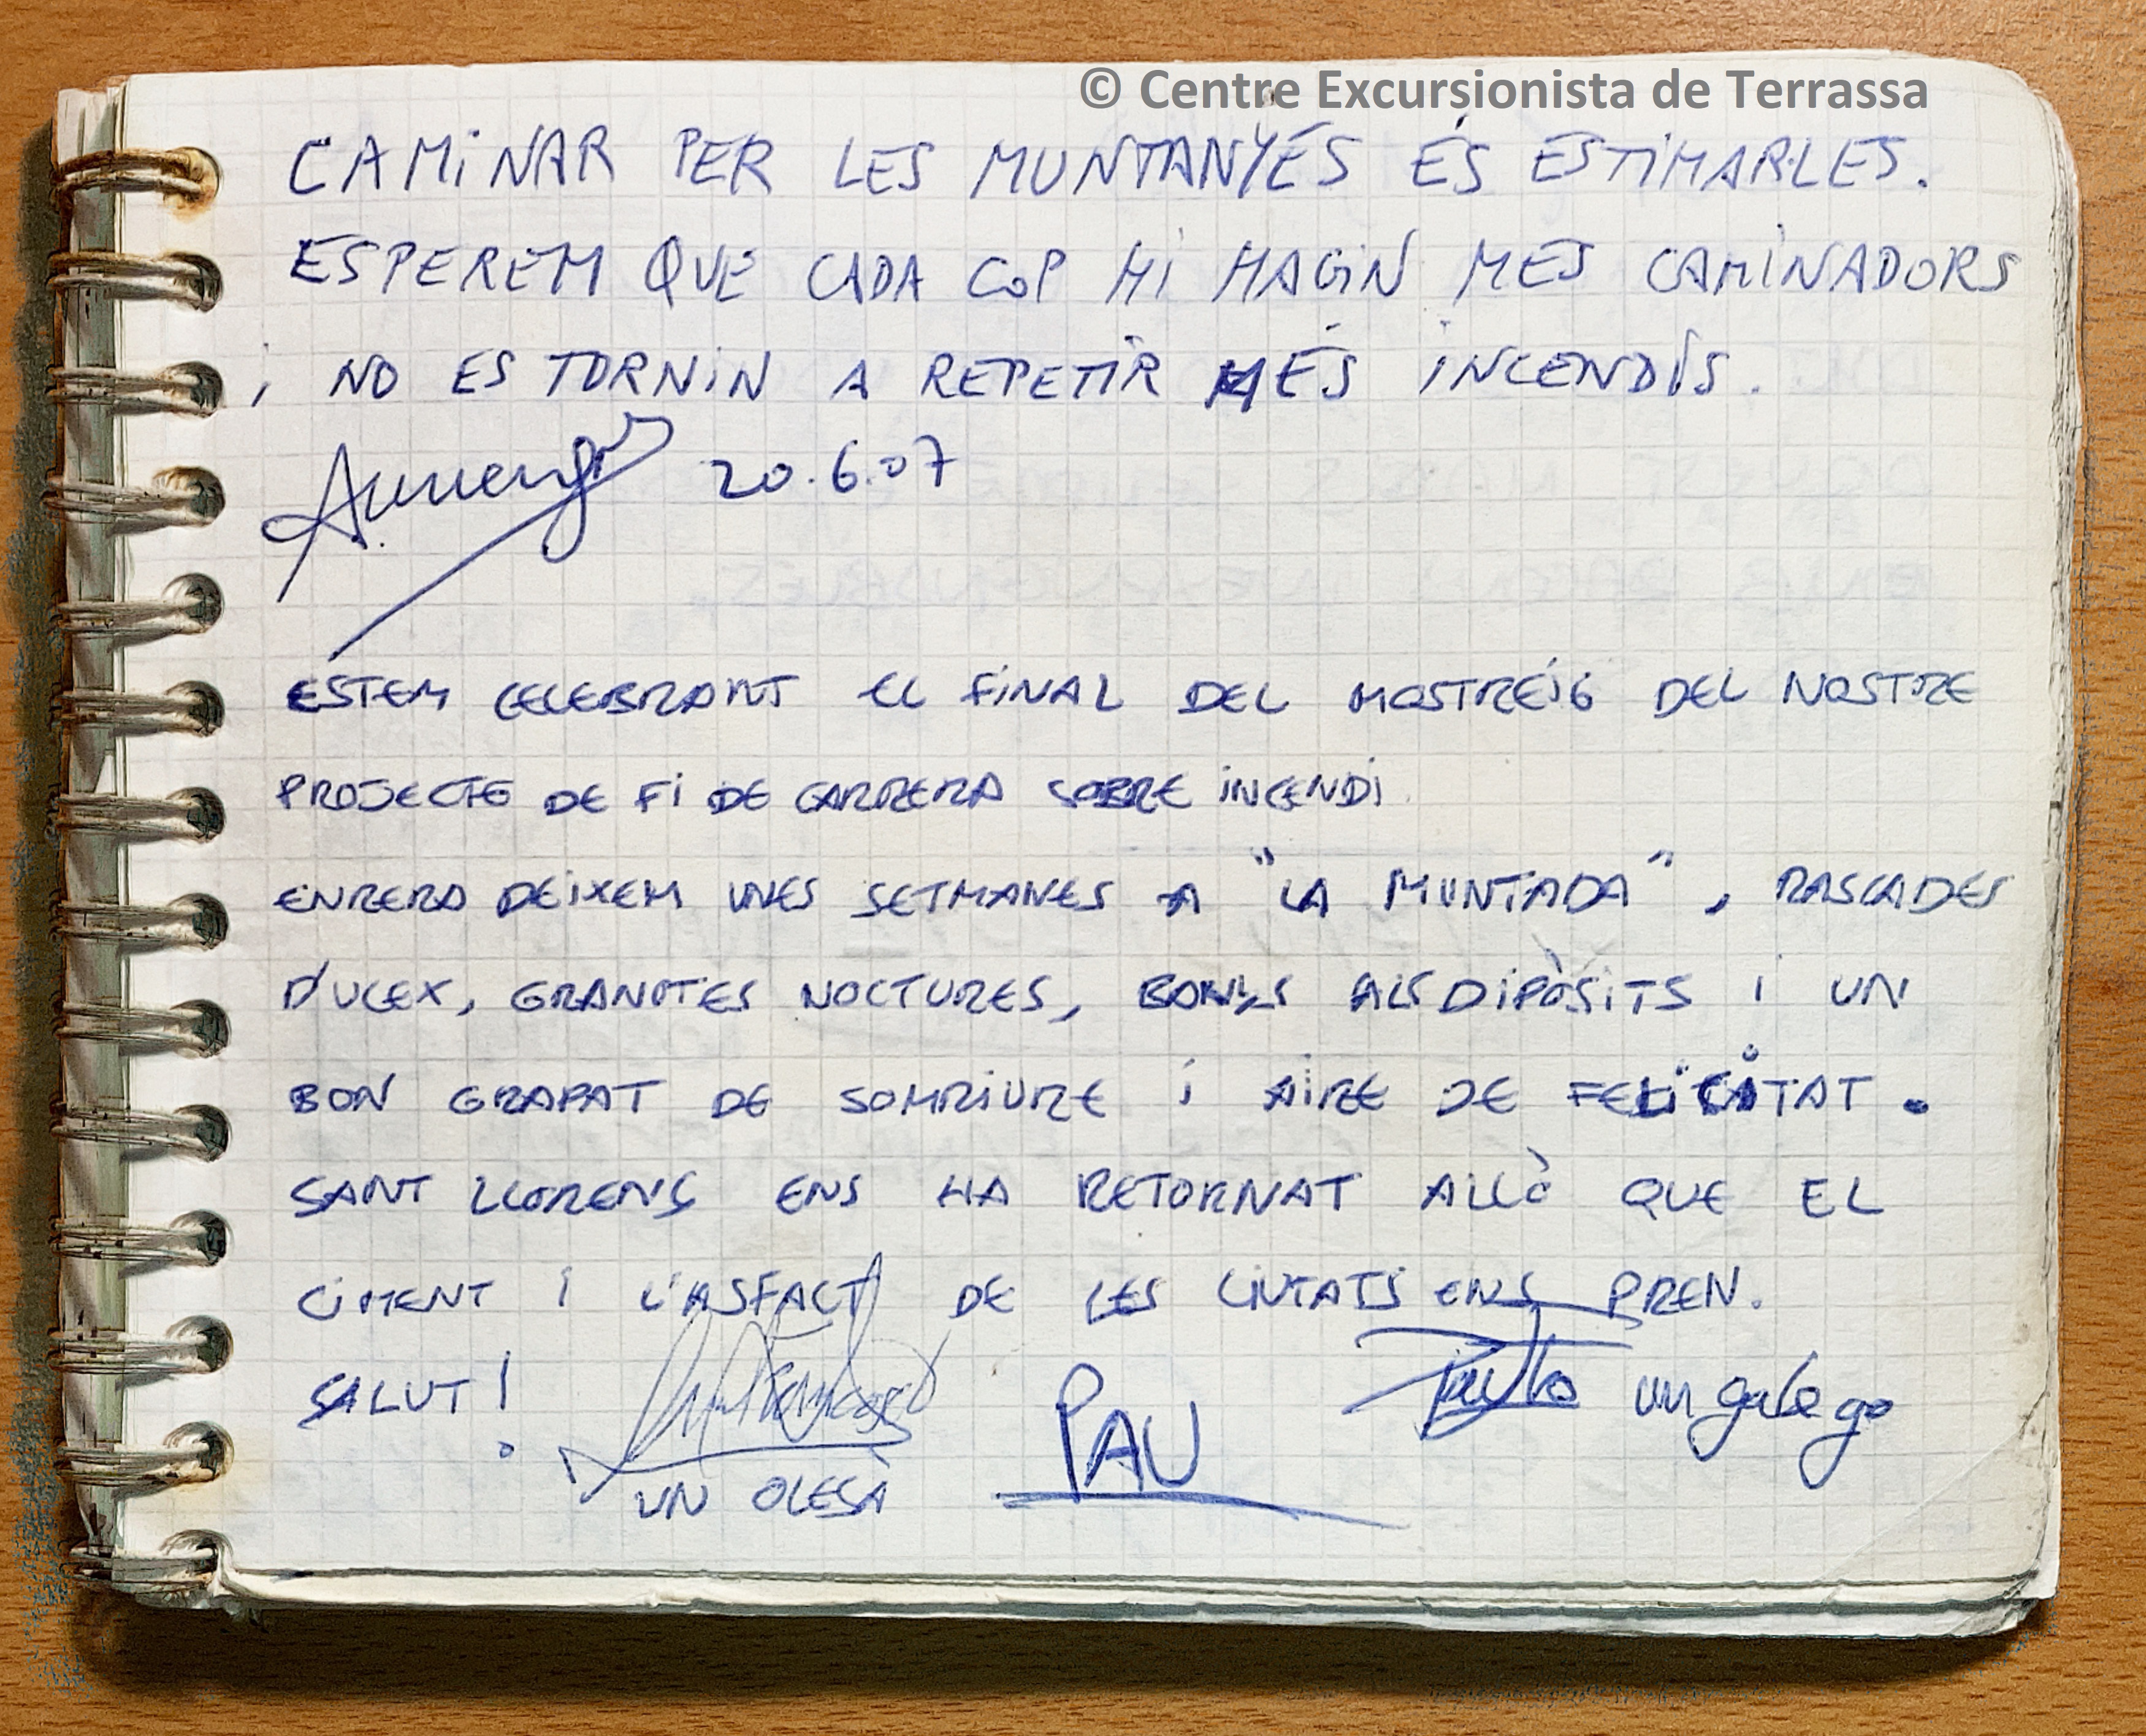 © Centre Excursionista de Terrassa
CAMINAR PER LES MUNTANYÉS ÉS ESTIMAR·LES.
ESPEREM QUE CADA COP HI HAGIN MES CAMINADORS
i NO ES TORNIN A REPETIR MÉS INCENDIS.
20.6.07
ESTEM CELEBRANT EL FINAL DEL MOSTREIG DEL NOSTRE
PROJECTE DE FI DE CARRERA SOBRE INCENDI
ENRERA DEIXEM UNES SETMANES A "LA MUNTADA", RASCADES
D'ULEX, GRANOTES NOCTURES, BANYS ALS DIPÒSITS I UN
BON GRAPAT DE SOMRIURE I AIRE DE FELICITAT.
SANT LLORENÇ ENS HA RETORNAT ALLÒ QUE EL
CIMENT I L'ASFALT DE LES CIUTATS ENS PREN.
SALUT!
PAU
un galego
UN OLESÀ